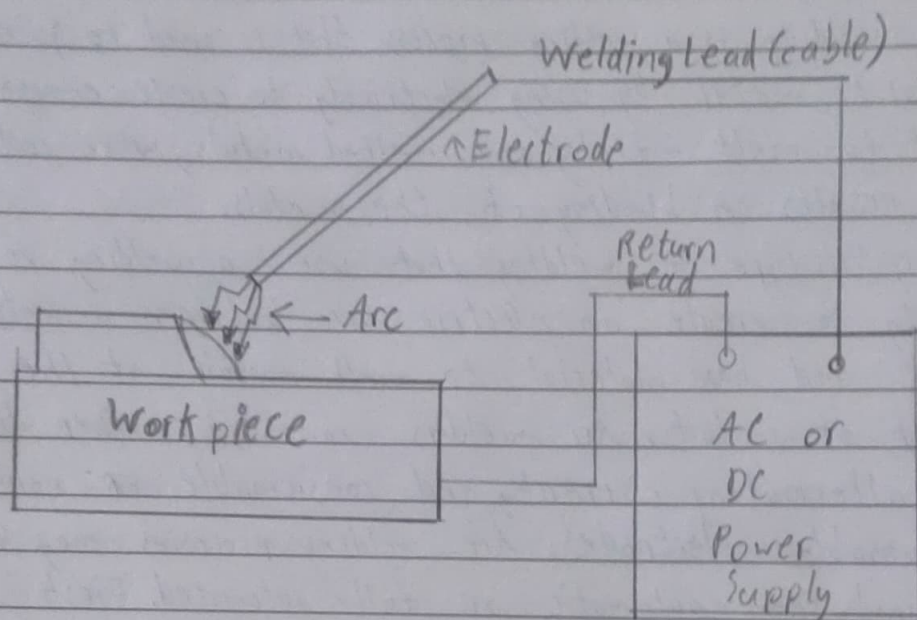 Welding Lead (cable)
↑Electrode
Return
Lead
← Arc
Work piece
AC or
DC
Power
Supply